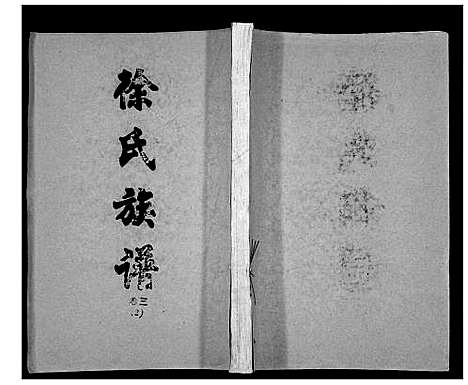 徐氏族譜
卷三
(2)